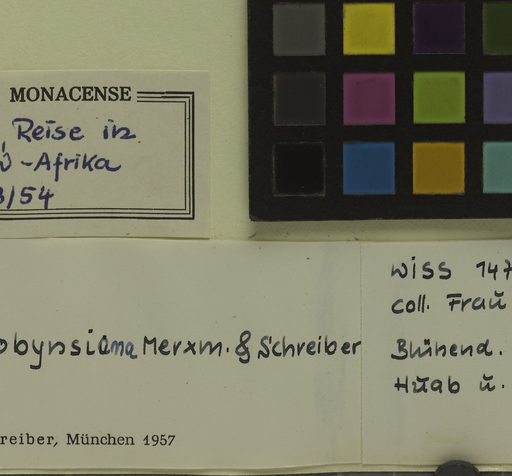 MONACENSE
, Reise in
-Afrika
3/54
obynsiana Merxm. & Schreiber
reiber, München 1957
Wiss 147
coll. Frau
Blühend.
Huab u.